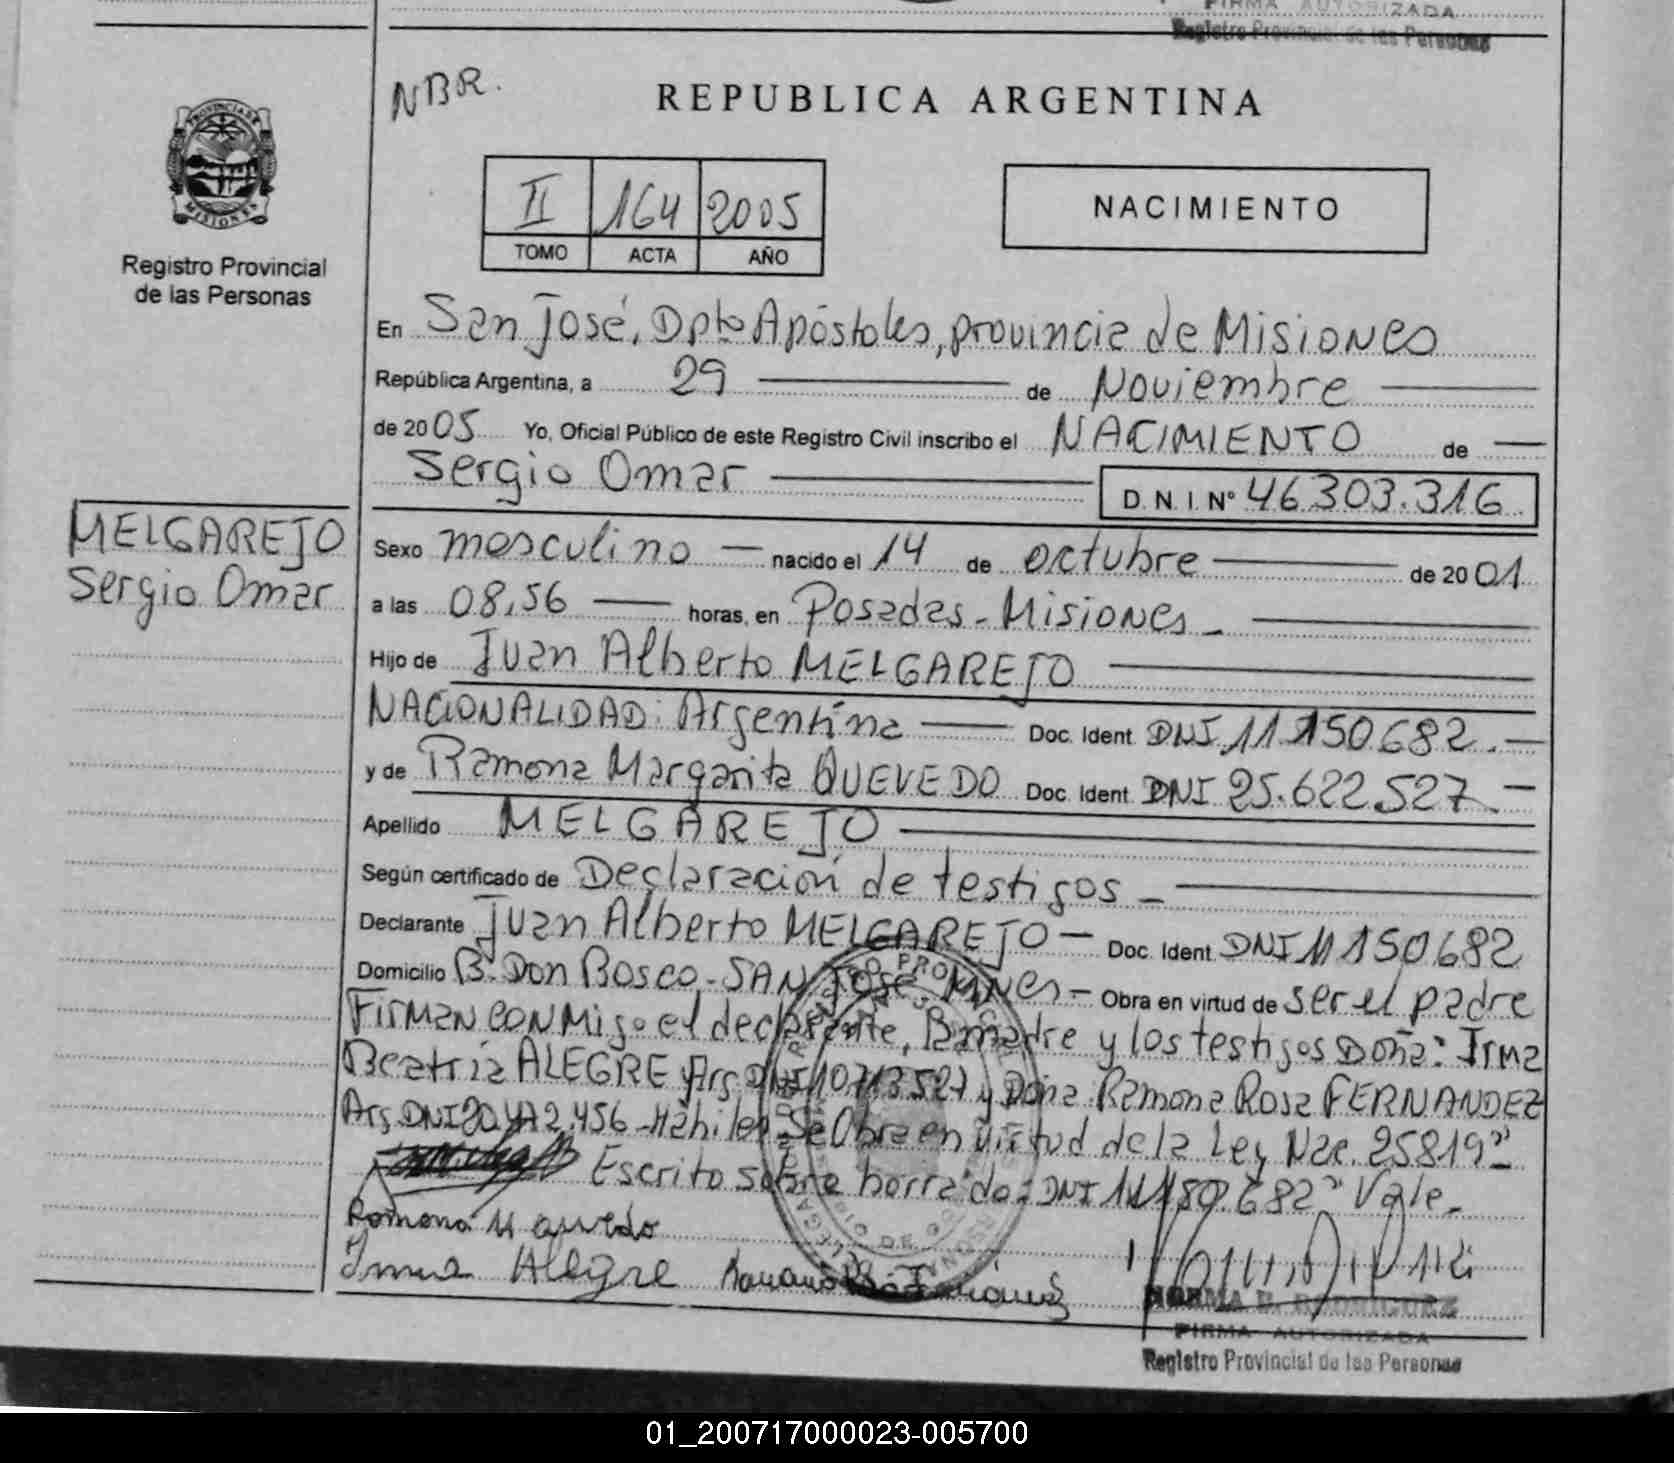 FIRMA AUTORIZADA
Registro Provincial de las Personas
NBR.
REPUBLICA ARGENTINA
PROVINCIA DE MISIONES
II 164 2005
TOMO ACTA AÑO
NACIMIENTO
Registro Provincial
de las Personas
En San José, Dpto Apóstoles, provincia de Misiones
República Argentina, a 29 de Noviembre
de 2005 Yo, Oficial Público de este Registro Civil inscribo el NACIMIENTO de
Sergio Omar
D.N.I. Nº 46.303.316
MELGAREJO
Sergio Omar
Sexo masculino nacido el 14 de octubre de 2001
a las 08,56 horas, en Posadas - Misiones -
Hijo de Juan Alberto MELGAREJO
NACIONALIDAD: Argentina Doc. Ident. DNI 11.150.682.-
y de Ramona Margarita QUEVEDO Doc. Ident. DNI 25.622.527.-
Apellido MELGAREJO
Según certificado de Declaración de testigos -
Declarante Juan Alberto MELGAREJO - Doc. Ident. DNI 11150.682
Domicilio B. Don Bosco - SAN José Mnes - Obra en virtud de ser el padre
Firman conmigo el declarante, la madre y los testigos Doña: Irma
Beatriz ALEGRE Arg. DNI 10713527 y Doña Ramona Rosa FERNANDEZ
Arg. DNI 20.472.456 - Hábiles Se Obra en virtud de la Ley Nac. 25819"
Escrito sobre borrado: DNI 11.150.682" Vale.-
Ramona M quevedo
Irma Alegre
NORMA B. RODRIGUEZ
FIRMA AUTORIZADA
Registro Provincial de las Personas
01_200717000023-005700